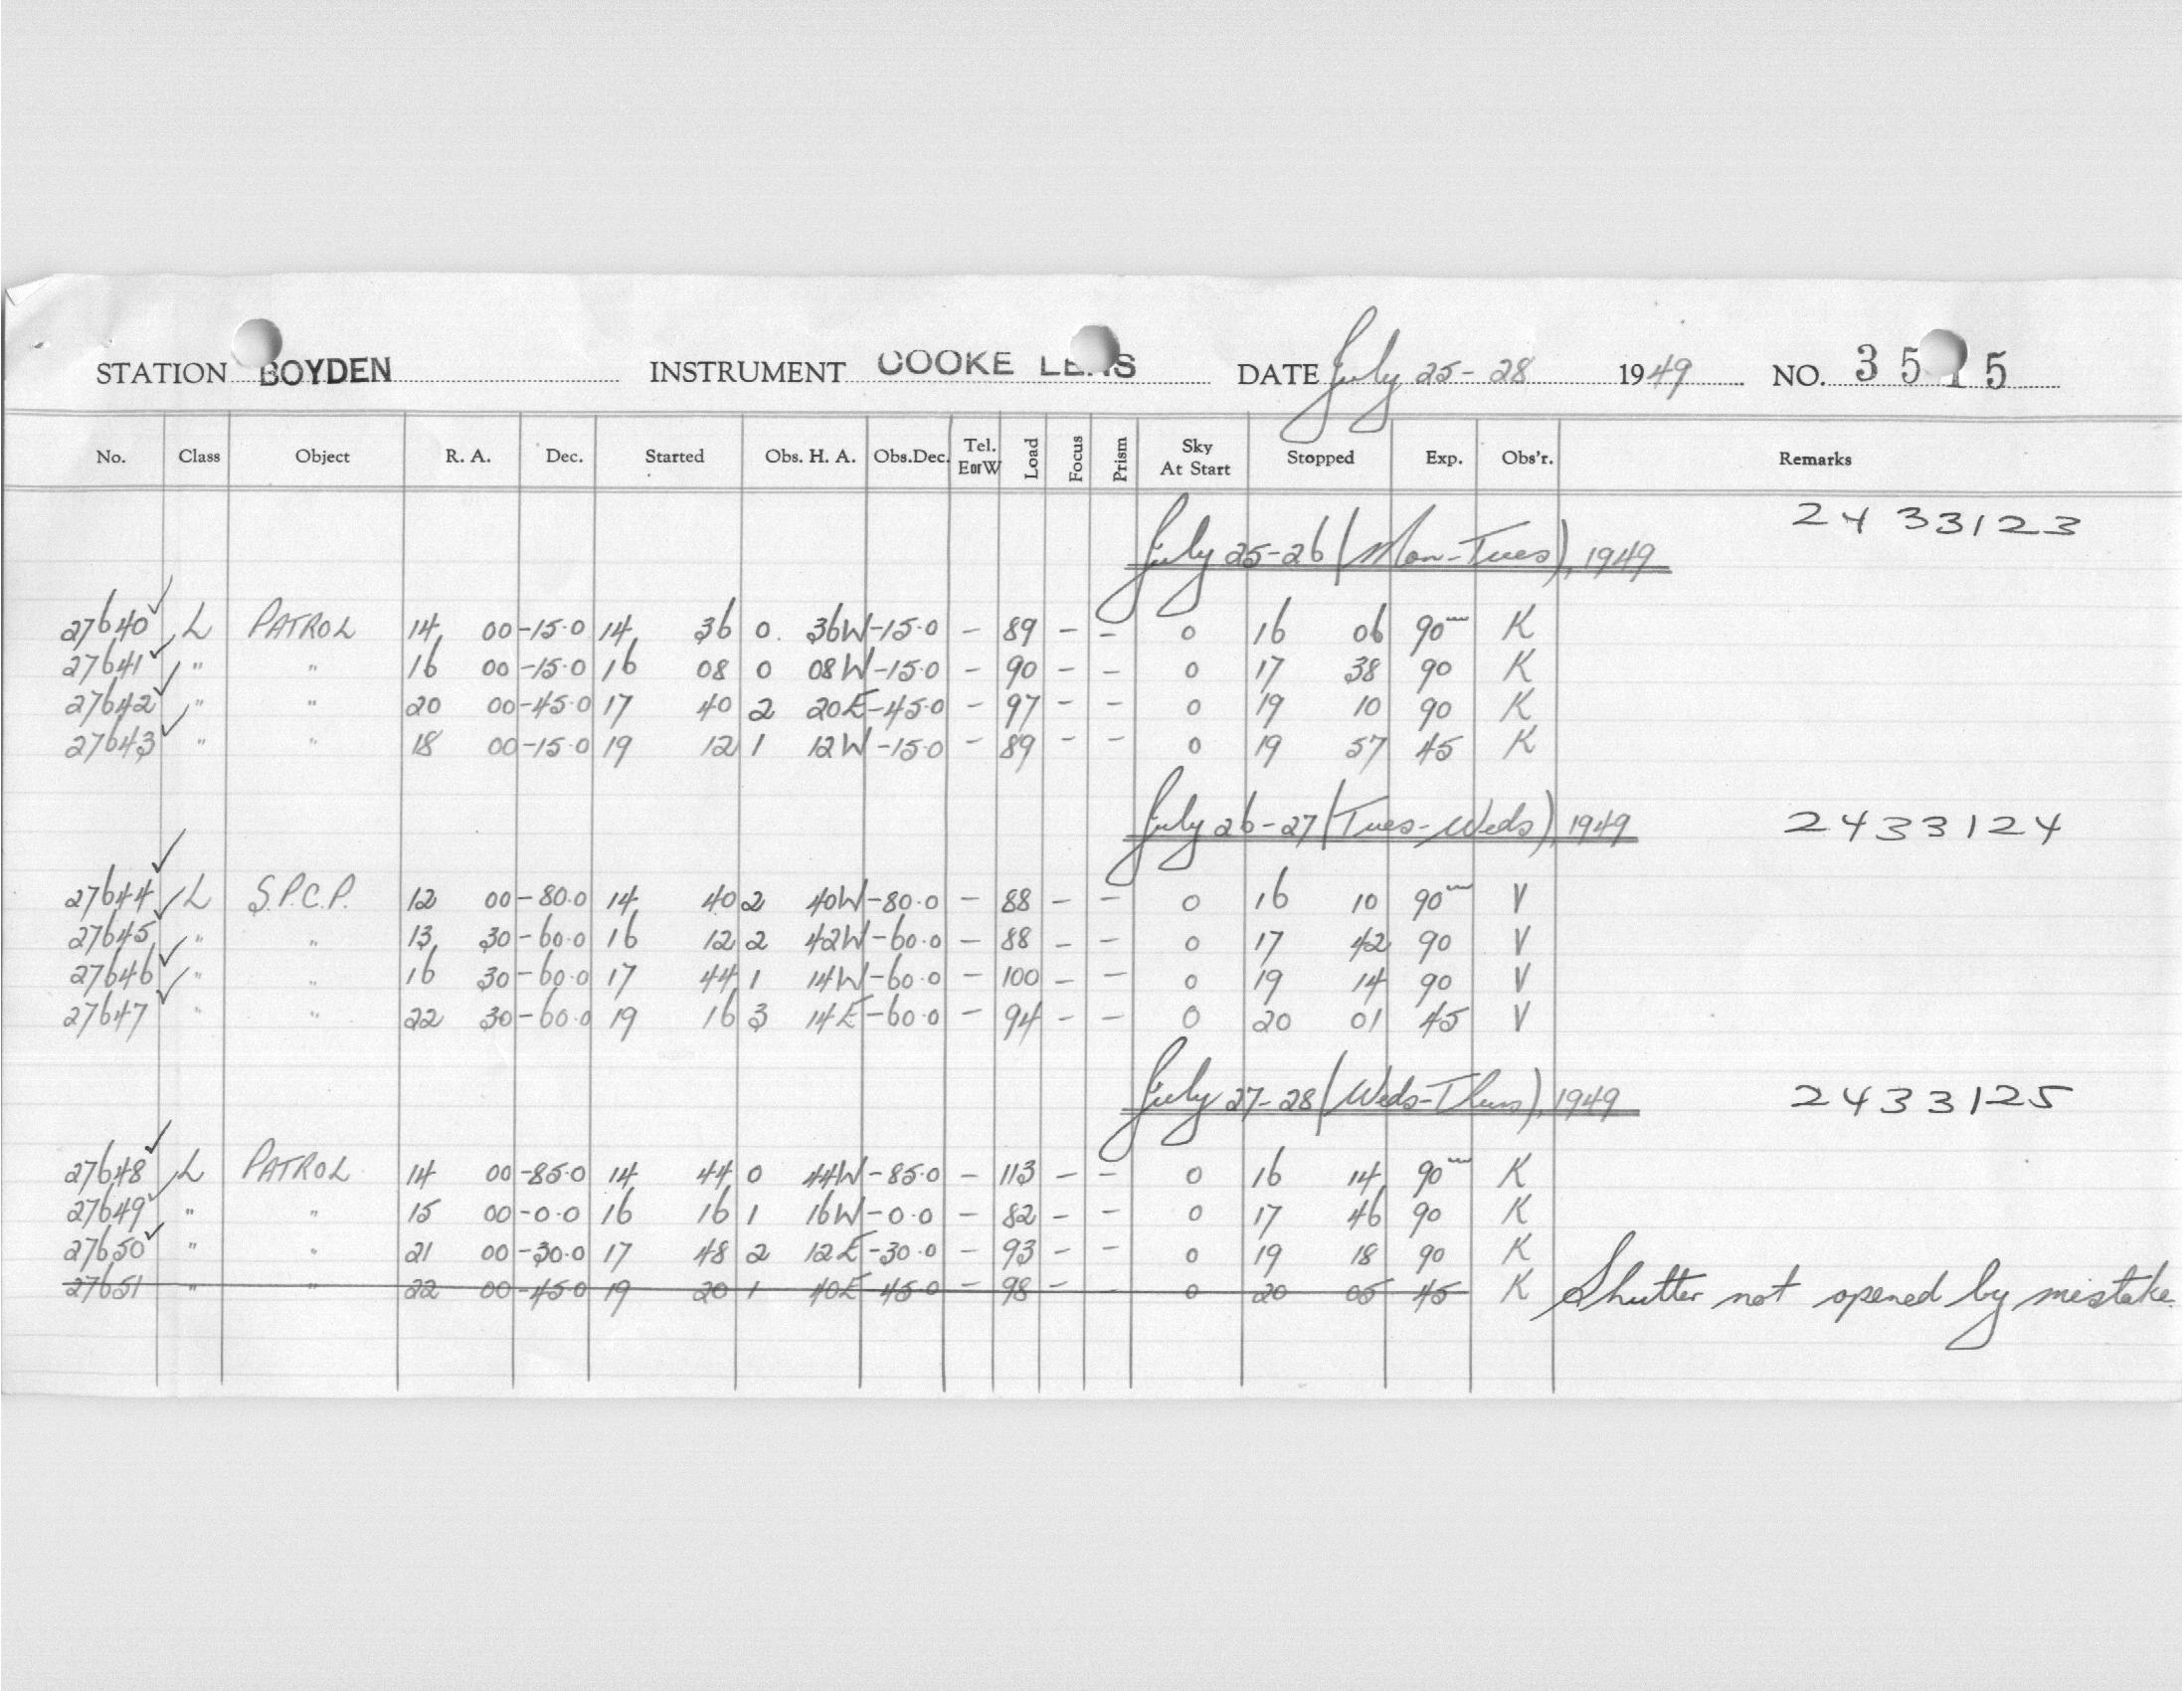 STATION BOYDEN INSTRUMENT COOKE LENS DATE July 25-28 1949 NO. 35 15
No. Class Object R. A. Dec. Started Obs. H. A. Obs.Dec. Tel. E or W Load Focus Prism Sky At Start Stopped Exp. Obs'r. Remarks
July 25-26 (Mon-Tues), 1949 2433123
27640 ✓ L PATROL 14 00 -15.0 14 36 0 36W -15.0 - 89 - - 0 16 06 90m K
27641 ✓ " " 16 00 -15.0 16 08 0 08W -15.0 - 90 - - 0 17 38 90 K
27642 ✓ " " 20 00 -45.0 17 40 2 20E -45.0 - 97 - - 0 19 10 90 K
27643 ✓ " " 18 00 -15.0 19 12 1 12W -15.0 - 89 - - 0 19 57 45 K
July 26-27 (Tues-Weds), 1949 2433124
27644 ✓ L S.P.C.P. 12 00 -80.0 14 40 2 40W -80.0 - 88 - - 0 16 10 90m V
27645 ✓ " " 13 30 -60.0 16 12 2 42W -60.0 - 88 - - 0 17 42 90 V
27646 ✓ " " 16 30 -60.0 17 44 1 14W -60.0 - 100 - - 0 19 14 90 V
27647 ✓ " " 22 30 -60.0 19 16 3 14E -60.0 - 94 - - 0 20 01 45 V
July 27-28 (Weds-Thurs), 1949 2433125
27648 ✓ L PATROL 14 00 -85.0 14 44 0 44W -85.0 - 113 - - 0 16 14 90m K
27649 ✓ " " 15 00 -0.0 16 16 1 16W -0.0 - 82 - - 0 17 46 90 K
27650 ✓ " " 21 00 -30.0 17 48 2 12E -30.0 - 93 - - 0 19 18 90 K
27651 " " 22 00 -45.0 19 20 1 40E -45.0 - 98 - 0 20 05 45 K Shutter not opened by mistake.